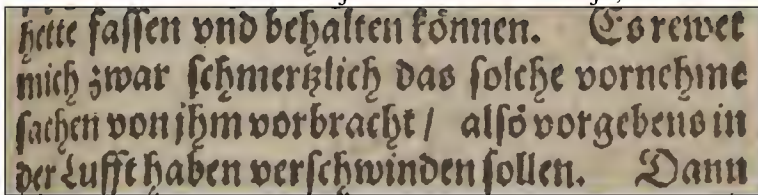 hette fassen vnd behalten können. Es rewet
mich zwar schmertzlich das solche vornehme
sachen von jhm vorbracht / also vorgebens in
der Lufft haben verschwinden sollen. Dann